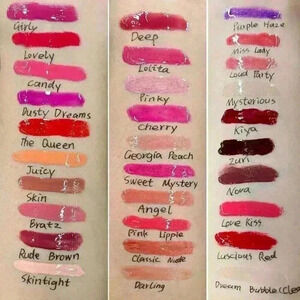 Girly
Lovely
Candy
Dusty Dreams
The Queen
Juicy
Skin
Bratz
Rude Brown
Skintight
Deep
Lolita
Pinky
Cherry
Georgia Peach
Sweet Mystery
Angel
Pink Lippie
Classic Nude
Darling
Purple Haze
Miss Lady
Loud Party
Mysterious
Kiya
Zuri
Nova
Love Kiss
Luscious Red
Dream Bubble (Clea